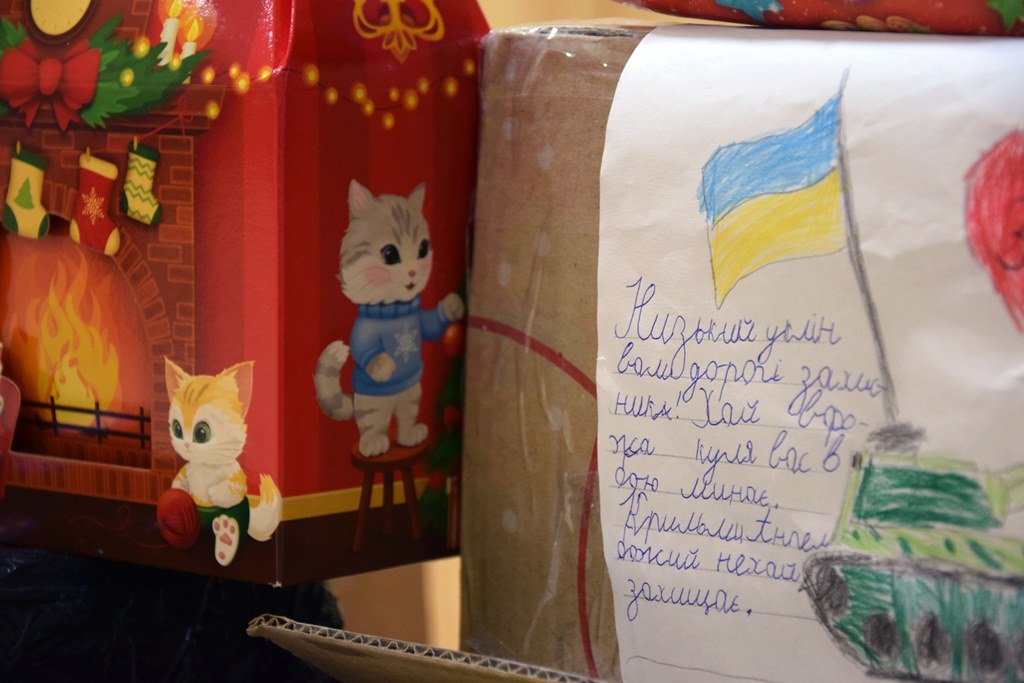 Низький уклін
вам дорогі захис-
ники! Хай воро-
жа куля вас в
бою минає.
Крильми Ангел
божий нехай
захищає.